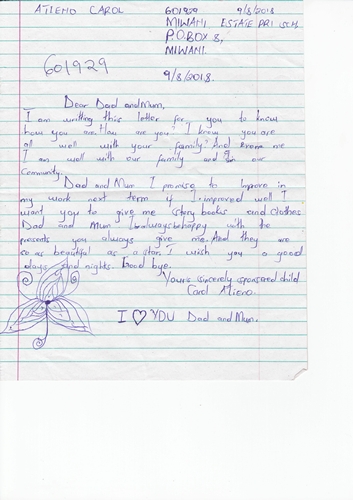 ATIENO CAROL 601929 9/8/2018
MIWANI ESTATE PRI SCH
P.O.BOX 8,
MIWANI.
601929
9/8/2018.
Dear Dad and Mum,
I am writting this letter for you to know
how you are. How are you? I know you are
all well with your family? And me
I am well with our family and in our
Community.
Dad and Mum I promise to improve in
my work next term if I improved well I
want you to give me story books and clothes
Dad and Mum I always be happy with the
presents you always give me. And they are
so as beautiful as a star. I wish you a good
days and nights. Good bye.
Yours sincerely sponsored child
Carol Atieno.
I ♡ YOU Dad and Mum.